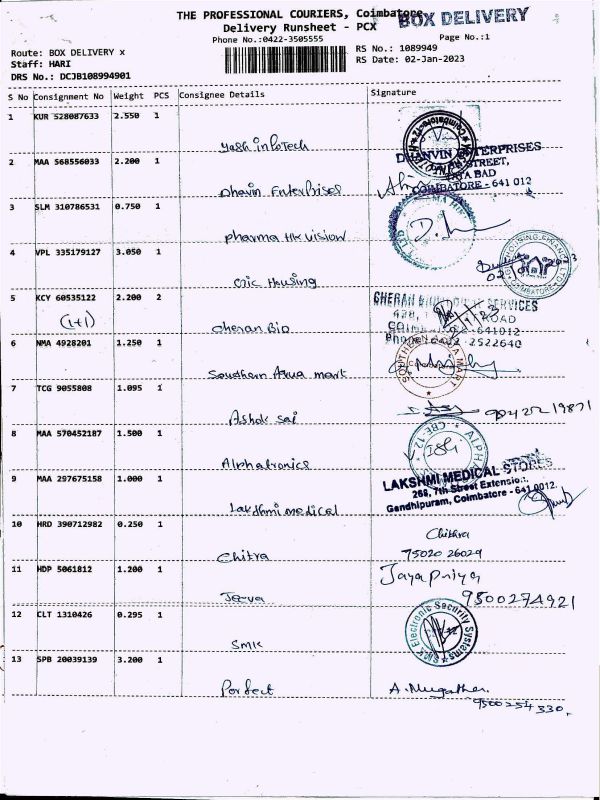 THE PROFESSIONAL COURIERS, Coimbatore
BOX DELIVERY
Delivery Runsheet - PCX
Phone No.:0422-3505555
Page No.:1
Route: BOX DELIVERY x
Staff: HARI
DRS No.: DCJB108994901
RS No.: 1089949
RS Date: 02-Jan-2023
S No Consignment No Weight PCS Consignee Details Signature
1 KUR 528087633 2.550 1
Yash infoTech
DHANVIN ENTERPRISES
STREET,
COIMBATORE - 641 012
2 MAA 568556033 2.200 1
Dhavin Enterprises
3 SLM 310786531 0.750 1
pharma HK vision
4 VPL 335179127 3.050 1
Gic Housing
HOUSING FINANCE LTD
COIMBATORE
5 KCY 60535122 2.200 2
(1+1)
cheran Bio
CHERAN SERVICES
ROAD
641012
2522640
6 NMA 4928201 1.250 1
Southern Aqua mart
SOUTHERN AQUA MART
7 TCG 9055808 1.095 1
Ashok sai
8 MAA 570452187 1.500 1
Alphatronics
CBE-12
9 MAA 297675158 1.000 1
Lakshmi medical
LAKSHMI MEDICAL STORES
268, 7th Street Extension,
Gandhipuram, Coimbatore - 641 0012.
10 HRD 390712982 0.250 1
Chitra
Chithra
75020 26029
11 HDP 5061812 1.200 1
Jeeva
Jayapriya
9500274921
12 CLT 1310426 0.295 1
SMK
SMK Electronic Security Systems
13 SPB 20039139 3.200 1
Perfect
9500254330.